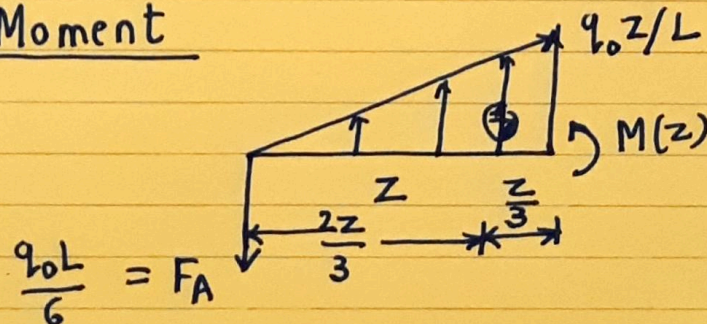 Moment
q₀z/L
M(z)
z
2z/3
z/3
q₀L/6 = F_A